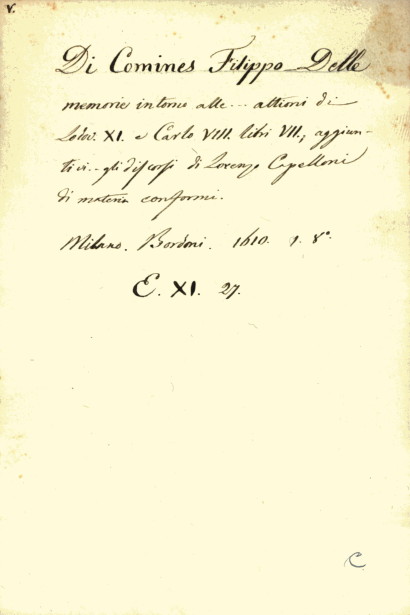 V.
Di Comines Filippo Delle
memorie intorno alle... attioni di
Lodov. XI. e Carlo VIII. libri VII., aggiun-
tivi.. gli discorsi di Lorenzo Capelloni
di materia conformi.
Milano. Bordoni. 1610. 1. 8°.
E. XI. 27.
C